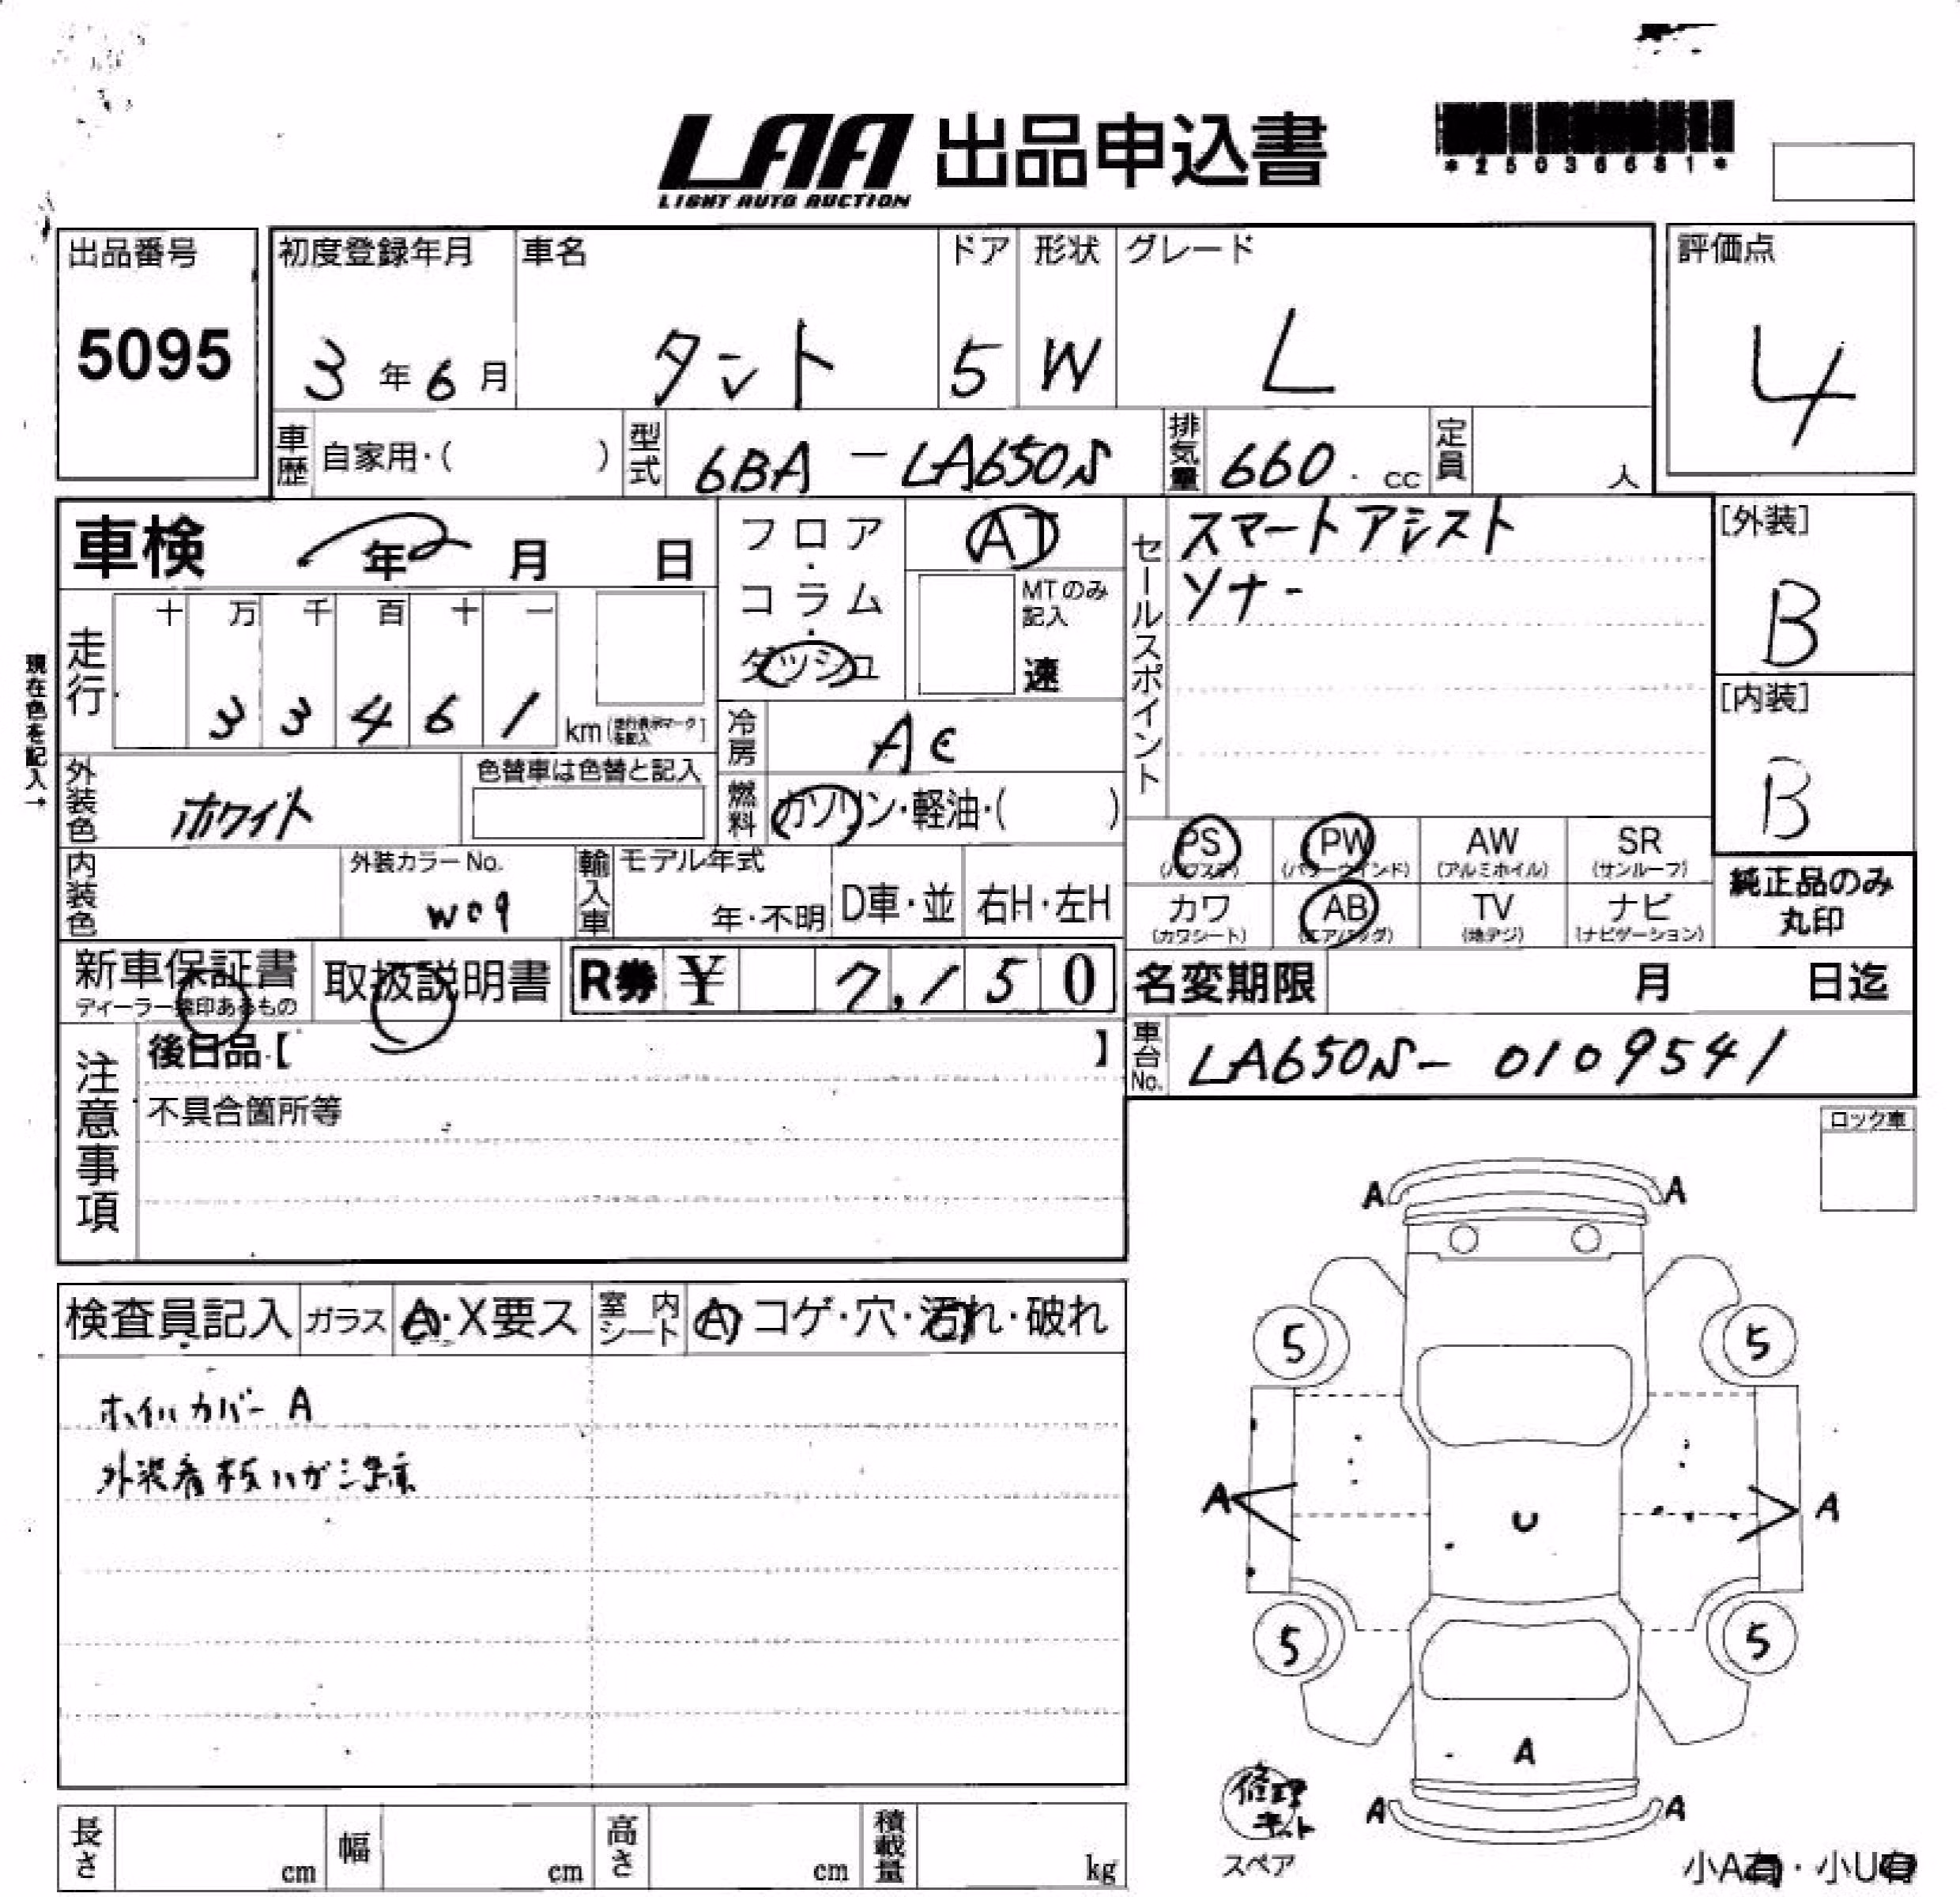 LAA 出品申込書
LIGHT AUTO AUCTION
*25036681*
出品番号
5095
初度登録年月
3年6月
車名
タント
ドア
5
形状
W
グレード
L
評価点
4
車歴 自家用・( )
型式 6BA-LA650S
排気量 660. cc
定員 人
車検 年 月 日
フロア・コラム・ダッシュ
AT
MTのみ記入
速
セールスポイント
スマートアシスト
ソナー
[外装]
B
[内装]
B
現在色を記入→
走行
十 万 千 百 十 一
3 3 4 6 1 km(走行表示マークを記入)
冷房 AC
燃料 ガソリン・軽油・( )
外装色 ホワイト
色替車は色替と記入
内装色
外装カラーNo.
W09
輸入車
モデル年式
年・不明
D車・並
右H・左H
PS (パワステ)
PW (パワーウインド)
AW (アルミホイル)
SR (サンルーフ)
カワ (カワシート)
AB (エアバッグ)
TV (地デジ)
ナビ (ナビゲーション)
純正品のみ
丸印
新車保証書
ディーラー捺印あるもの
取扱説明書
R券 ¥ 7,150
名変期限 月 日迄
車台No. LA650S-0109541
注意事項
後日品【 】
不具合箇所等
ロック車
検査員記入
ガラス A・X要ス
室内シート A コゲ・穴・汚れ・破れ
ホイルカバーA
外装看板ハガシ跡
A A
5 5
A U A
5 5
A
A A
修理キット
スペア
小A有・小U有
長さ cm
幅 cm
高さ cm
積載量 kg